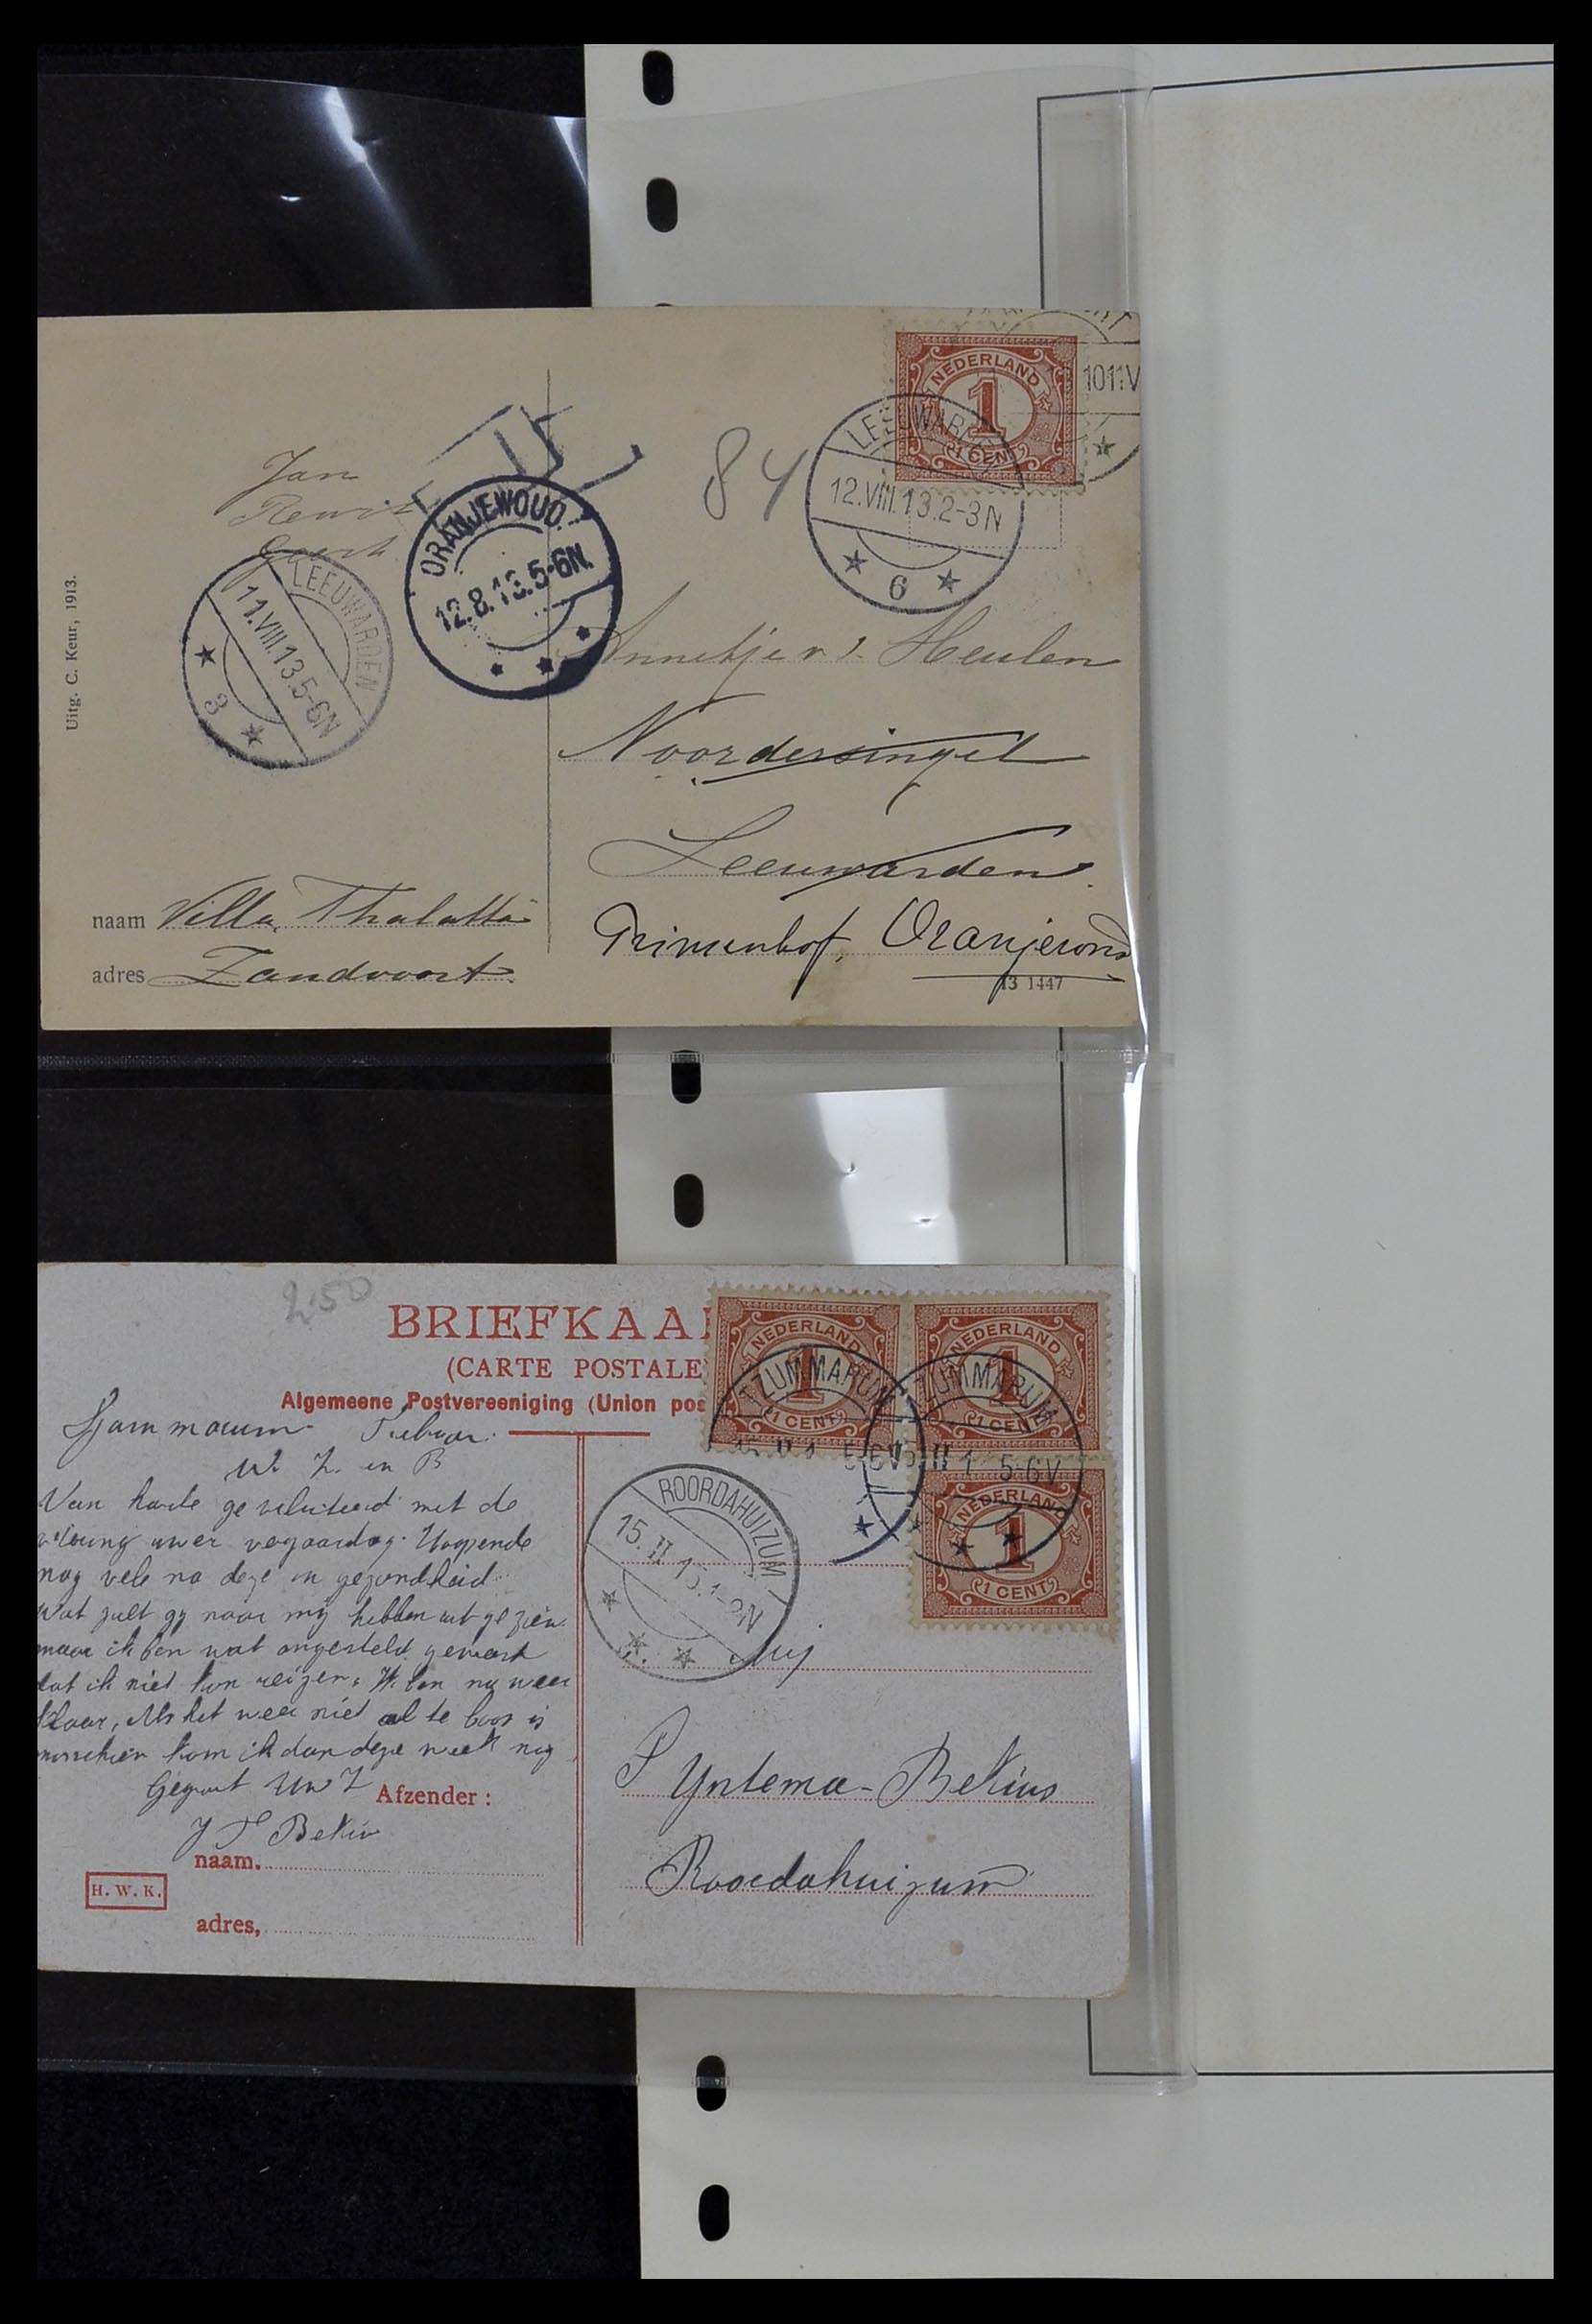 NEDERLAND
1
1 CENT
1011V
LEEUWARDEN
12.VIII.13.2-3N
6
84
Jan
ORANJEWOUD
12.8.13.5-6N.
LEEUWARDEN
11.VIII.13.5-6N
3
Uitg. C. Keur, 1913.
Annetje v. d. Heulen
Noordersingel
Leeuwarden
Oranjewoud
naam Villa Thalatta
adres Zandvoort.
13 1447
2.50
BRIEFKAA
(CARTE POSTALE
Algemeene Postvereeniging (Union pos
NEDERLAND
1
1 CENT
NEDERLAND
1
1 CENT
NEDERLAND
1
1 CENT
TZUMMARUM
5-6V
TZUMMARUM
II 1 5-6V
ROORDAHUIZUM
15.II.15.1-2N
W. Z. en B
Van harte gefeliciteerd met de
uwer
nog vele na deze in gezondheid
Wat zult gy naar my hebben uitgezien
maar ik ben wat ongesteld geweest
dat ik niet kon reizen. Ik ben nu weer
klaar, Als het weer niet al te boos is
misschien kom ik dan deze week nog
Gegroet Uw Z
Afzender :
naam.
H. W. K.
adres,
Mej
P Yntema-Bekius
Roordahuizum